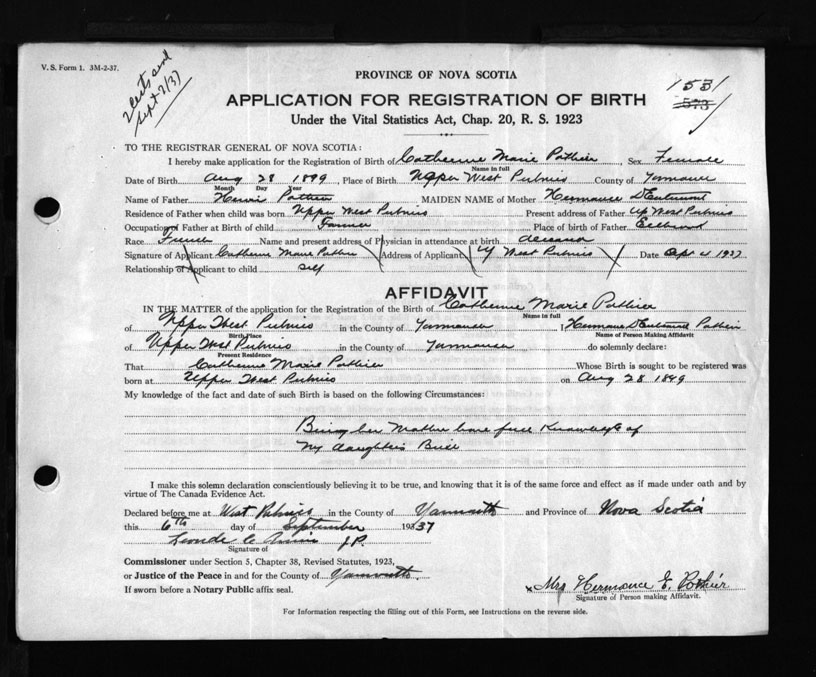 V. S. Form 1. 3M-2-37.
Sept 7/37
1531
573
PROVINCE OF NOVA SCOTIA
APPLICATION FOR REGISTRATION OF BIRTH
Under the Vital Statistics Act, Chap. 20, R. S. 1923
TO THE REGISTRAR GENERAL OF NOVA SCOTIA:
I hereby make application for the Registration of Birth of Catherine Marie Pothier, Sex Female
Name in full
Date of Birth Aug 28 1899, Place of Birth Upper West Pubnico County of Yarmouth
Month Day Year
Name of Father Pothier MAIDEN NAME of Mother Hermance D'Entremont
Residence of Father when child was born Upper West Pubnico Present address of Father Up West Pubnico
Occupation of Father at Birth of child Farmer Place of birth of Father
Race French Name and present address of Physician in attendance at birth
Signature of Applicant Catherine Marie Pothier Address of Applicant West Pubnico Date Sept 4 1937
Relationship of Applicant to child self
AFFIDAVIT
IN THE MATTER of the application for the Registration of the Birth of Catherine Marie Pothier
Name in full
of Upper West Pubnico in the County of Yarmouth, Hermance D'Entremont Pothier
Birth Place Name of Person Making Affidavit
of Upper West Pubnico in the County of Yarmouth do solemnly declare:
Present Residence
That Catherine Marie Pothier Whose Birth is sought to be registered was
born at Upper West Pubnico on Aug 28 1899
My knowledge of the fact and date of such Birth is based on the following Circumstances:
Being her Mother have full Knowledge of
my daughters Birth
I make this solemn declaration conscientiously believing it to be true, and knowing that it is of the same force and effect as if made under oath and by
virtue of The Canada Evidence Act.
Declared before me at West Pubnico in the County of Yarmouth and Province of Nova Scotia
this 6th day of September 1937
J.P.
Signature of
Commissioner under Section 5, Chapter 38, Revised Statutes, 1923,
or Justice of the Peace in and for the County of Yarmouth.
If sworn before a Notary Public affix seal.
x Mrs Hermance E. Pothier
Signature of Person making Affidavit.
For Information respecting the filling out of this Form, see Instructions on the reverse side.